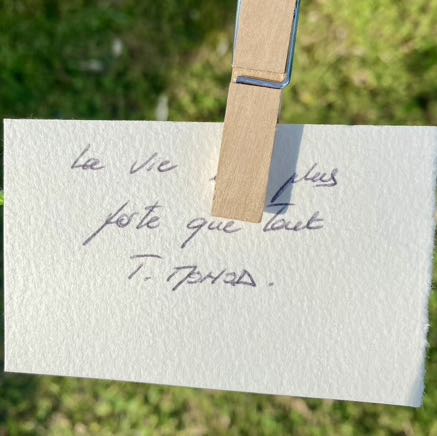 La vie plus
forte que tout
T. MONOD.